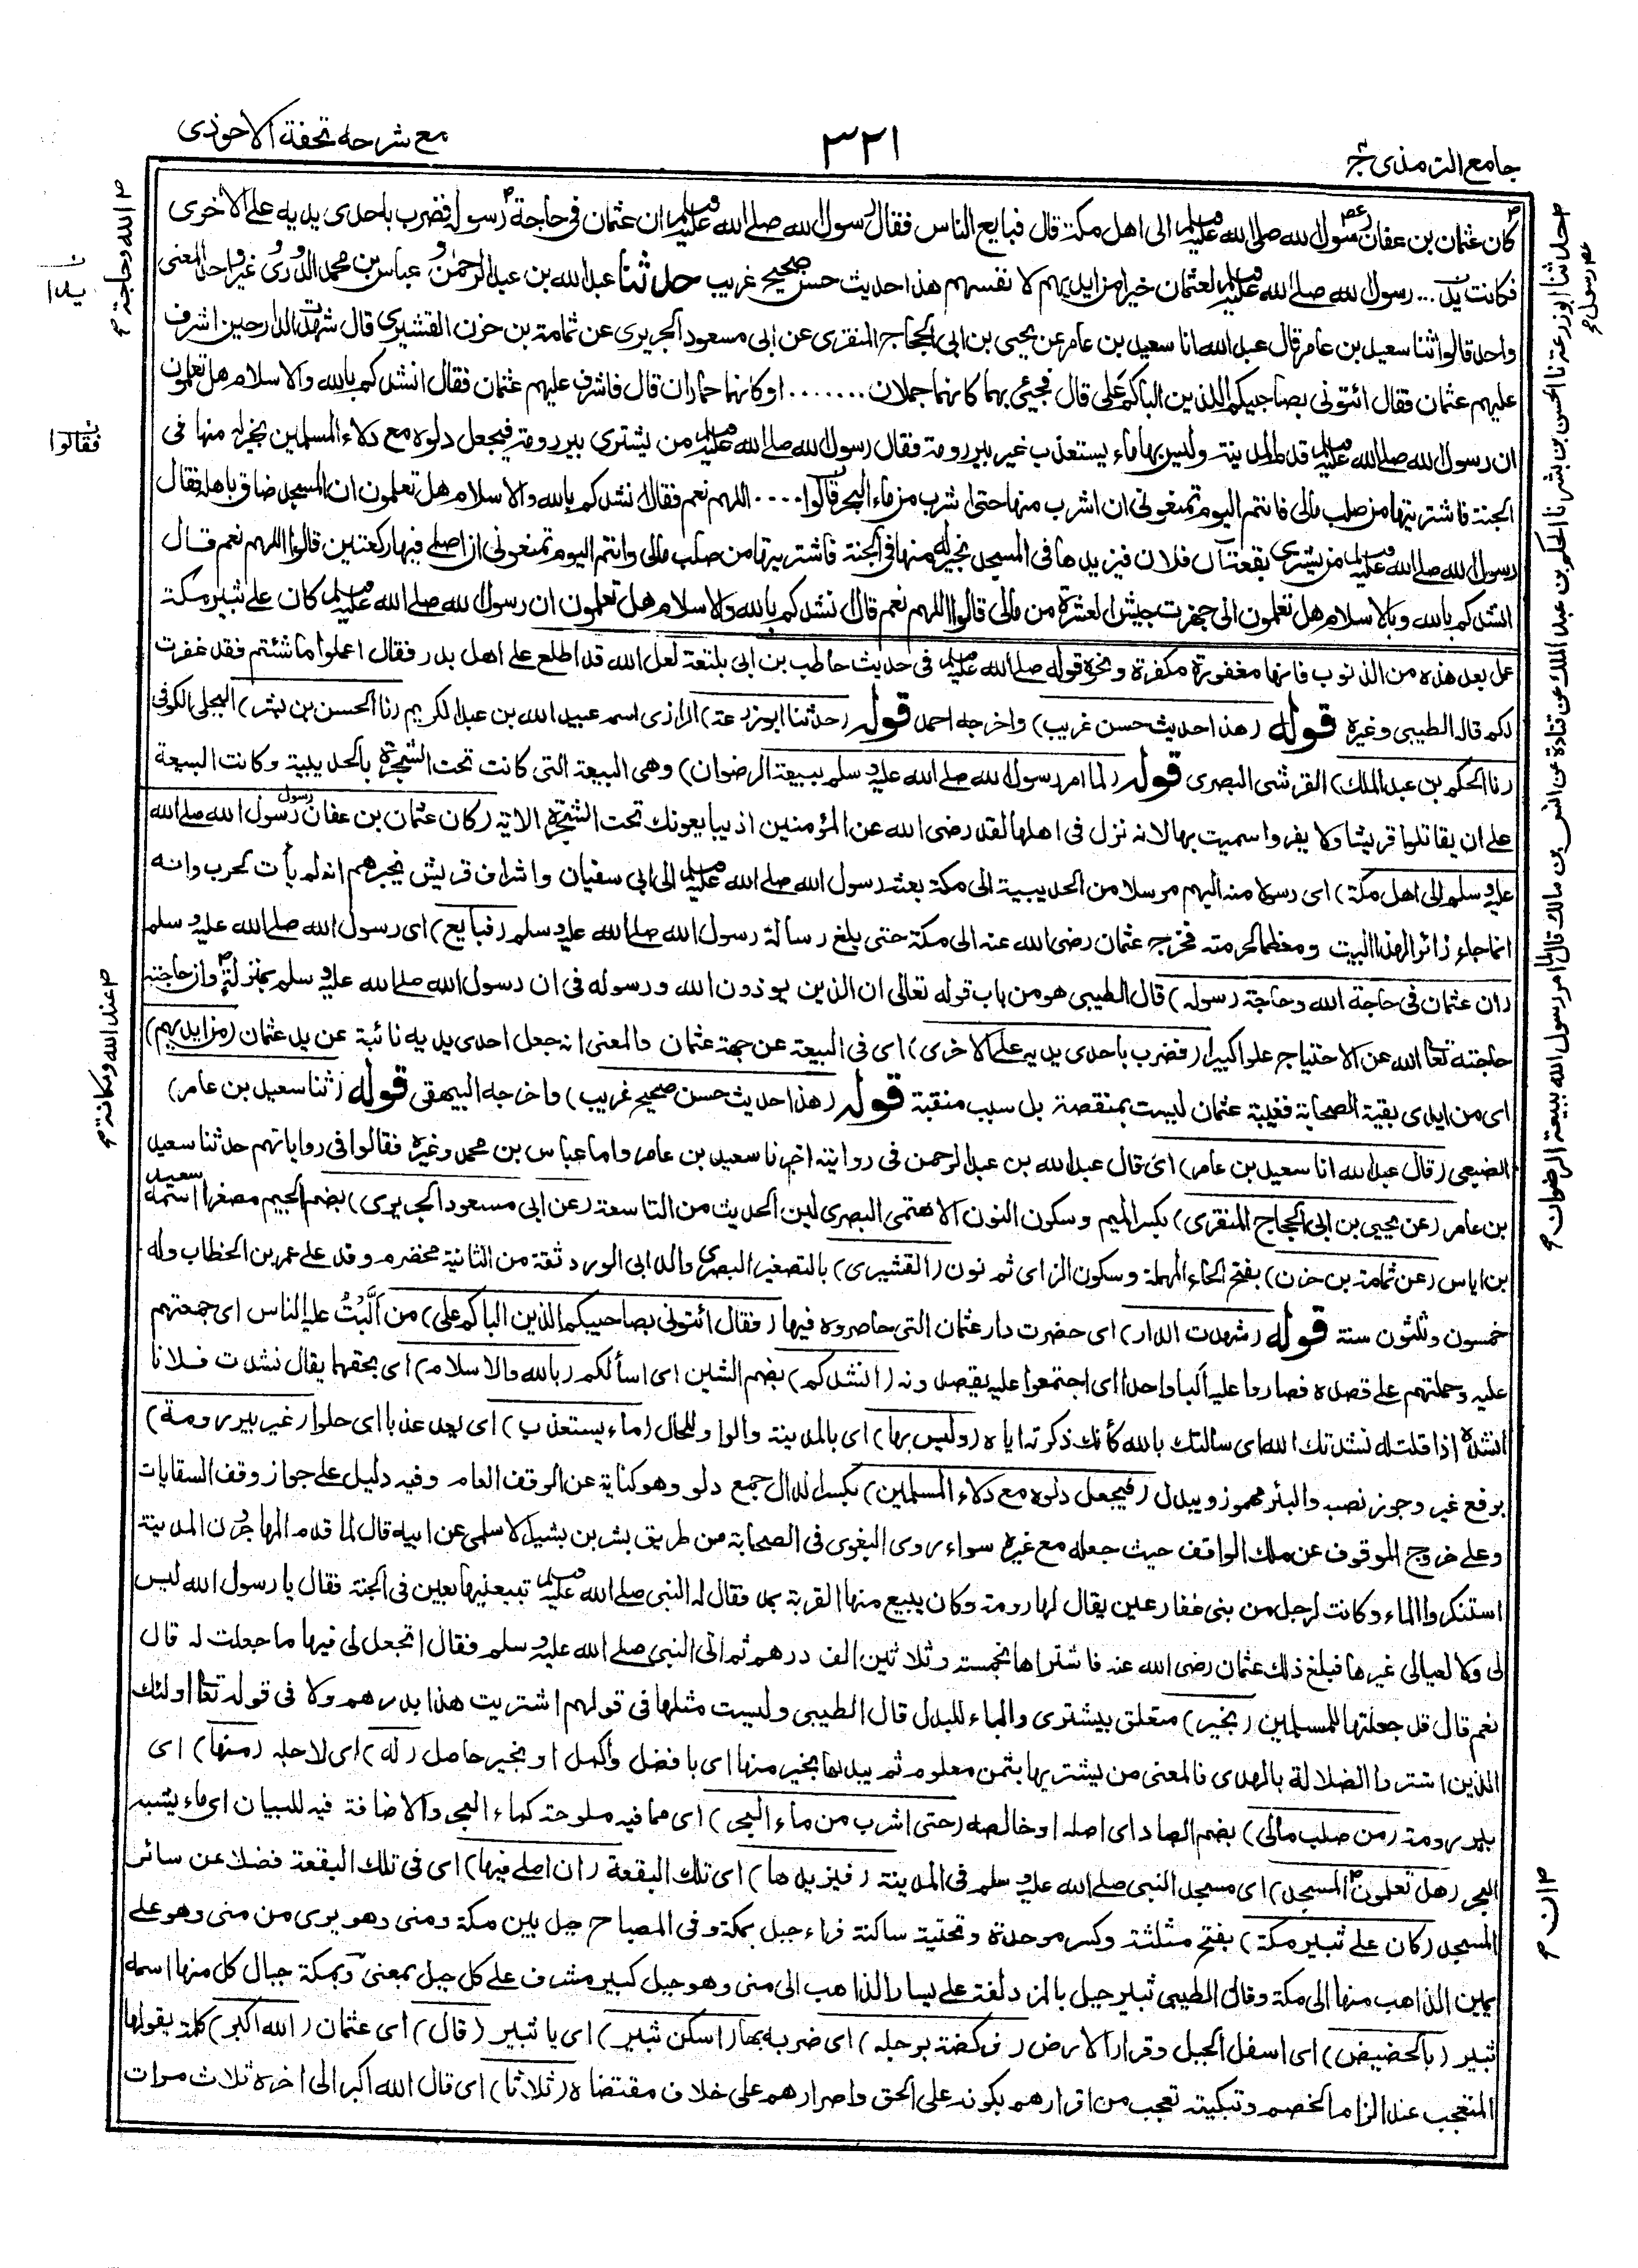 جامع الترمذی ج
٣٢١
مع شرحه تحفة الاحوذی
كان عثمان بن عفان رسول الله صلى الله عليه وسلم الى اهل مكة قال فبايع الناس فقال رسول الله صلے الله عليه وسلم ان عثمان فى حاجة رسوله فضرب باحدى يديه على الاخرى
فكانت يد ... رسول الله صلے الله عليه وسلم لعثمان خيرا من ايديهم لانفسهم هذا حديث حسن صحيح غريب حدثنا عبد الله بن عبد الرحمن وعباس بن محمد الدورى وغير واحد المعنى
واحد قالوا ثنا سعيد بن عامر قال عبد الله انا سعيد بن عامر عن يحيى بن ابى الحجاج المنقرى عن ابى مسعود الجريرى عن ثمامة بن حزن القشيرى قال شهدت الدار حين اشرف
عليهم عثمان فقال ائتونى بصاحبيكم اللذين الباكم على قال فجيئ بهما كانهما جملان ....... او كانهما حماران قال فاشرف عليهم عثمان فقال انشدكم بالله والاسلام هل تعلمون
ان رسول الله صلے الله عليه وسلم قدم المدينة وليس بها ماء يستعذب غير بير رومة فقال رسول الله صلے الله عليه وسلم من يشترى بير رومة فيجعل دلوه مع دلاء المسلمين بخير له منها فى
الجنة فاشتريتها من صلب مالى فانتم اليوم تمنعونى ان اشرب منها حتى اشرب من ماء البحر قالوا .... اللهم نعم فقال انشدكم بالله والاسلام هل تعلمون ان المسجد ضاق باهله فقال
رسول الله صلے الله عليه وسلم من يشترى بقعة آل فلان فيزيدها فى المسجد بخير له منها فى الجنة فاشتريتها من صلب مالى وانتم اليوم تمنعونى ان اصلے فيها ركعتين قالوا اللهم نعم قال
انشدكم بالله وبالاسلام هل تعلمون انى جهزت جيش العسرة من مالى قالوا اللهم نعم قال انشدكم بالله والاسلام هل تعلمون ان رسول الله صلے الله عليه وسلم كان على ثبير مكة
عمل بعد هذه من الذنوب فانها مغفورة مكفرة ونحوه قوله صلے الله عليه وسلم فى حديث حاطب بن ابى بلتعة لعل الله قد اطلع على اهل بدر فقال اعملوا ما شئتم فقد غفرت
لكم قاله الطيبى وغيره قوله (هذا حديث حسن غريب) واخرجه احمد قوله (حدثنا ابوزرعة) الرازى اسمه عبيد الله بن عبد الكريم (نا الحسن بن بشر) البجلى الكوفى
(نا الحكم بن عبد الملك) القرشى البصرى قوله (لما امر رسول الله صلے الله عليه وسلم ببيعة الرضوان) وهى البيعة التى كانت تحت الشجرة بالحديبية وكانت البيعة
على ان يقاتلوا قريشا ولا يفروا سميت بها لانه نزل فى اهلها لقد رضى الله عن المؤمنين اذ يبايعونك تحت الشجرة الاية (كان عثمان بن عفان رسول رسول الله صلے الله
عليه وسلم الى اهل مكة) اى رسولا منه اليهم مرسلا من الحديبية الى مكة بعثه رسول الله صلے الله عليه وسلم الى ابى سفيان واشراف قريش يخبرهم انه لم يأت لحرب وانه
انما جاء زائرا لهذا البيت ومعظما لحرمته فخرج عثمان رضى الله عنه الى مكة حتى بلغ رسالة رسول الله صلے الله عليه وسلم (فبايع) اى رسول الله صلے الله عليه وسلم
(ان عثمان فى حاجة الله وحاجة رسوله) قال الطيبى هو من باب قوله تعالى ان الذين يوذون الله ورسوله فى ان رسول الله صلے الله عليه وسلم بمنزلة وان حاجته
حاجته تعالى الله عن الاحتياج علوا كبيرا (فضرب باحدى يديه على الاخرى) اى فى البيعة عن جهة عثمان والمعنى انه جعل احدى يديه نائبة عن يد عثمان (من ايديهم)
اى من ايدى بقية الصحابة فغيبة عثمان ليست بمنقصة بل سبب منقبة قوله (هذا حديث حسن صحيح غريب) واخرجه البيهقى قوله (ثنا سعيد بن عامر)
الضبعى (قال عبد الله انا سعيد بن عامر) اى قال عبد الله بن عبد الرحمن فى روايته اخبرنا سعيد بن عامر واما عباس بن محمد وغيره فقالوا فى رواياتهم حدثنا سعيد
بن عامر (عن يحيى بن ابى الحجاج المنقرى) بكسر الميم وسكون النون الاهتمى البصرى لين الحديث من التاسعة (عن ابى مسعود الجريرى) بضم الجيم مصغرا اسمه سعيد
بن اياس (عن ثمامة بن حزن) بفتح الحاء المهملة وسكون الزاى ثم نون (القشيرى) بالتصغير البصرى والد ابى الورد ثقة من الثانية مخضرم وفد على عمر بن الخطاب وله
خمسون وثلثون سنة قوله (شهدت الدار) اى حضرت دار عثمان التى حاصروه فيها (فقال ائتونى بصاحبيكم الذين الباكم على) من اَلَّبْتُ عليه الناس اى جمعتهم
عليه وحملتهم على قصده فصاروا عليه البا واحدا اى اجتمعوا عليه يقصدونه (انشدكم) بضم الشين اى اسألكم (بالله والاسلام) اى بحقهما يقال نشدت فلانا
انشده اذا قلت له نشدتك الله اى سالتك بالله كأنك ذكرته اياه (وليس بها) اى بالمدينة والواو للحال (ماء يستعذب) اى يعد عذبا اى حلوا (غير بير رومة)
برفع غير وجوز نصبه والبئر مهموز ويبدل (فيجعل دلوه مع دلاء المسلمين) بكسر الدال جمع دلو وهو كناية عن الوقف العام وفيه دليل على جواز وقف السقايات
وعلى خروج الموقوف عن ملك الواقف حيث جعله مع غيره سواء روى البغوى فى الصحابة من طريق بشر بن بشير الاسلمى عن ابيه قال لما قدم المهاجرون المدينة
استنكروا الماء وكانت لرجل من بنى غفار عين يقال لها رومة وكان يبيع منها القربة بمد فقال له النبى صلے الله عليه وسلم تبيعنيها بعين فى الجنة فقال يا رسول الله ليس
لى ولا لعيالى غيرها فبلغ ذلك عثمان رضى الله عنه فاشتراها بخمسة وثلاثين الف درهم ثم اتى النبى صلے الله عليه وسلم فقال اتجعل لى فيها ما جعلت له قال
نعم قال قد جعلتها للمسلمين (بخير) متعلق بيشترى والباء للبدل قال الطيبى وليست مثلها فى قولهم اشتريت هذا بدرهم ولا فى قوله تعالى اولئك
الذين اشتروا الضلالة بالهدى فالمعنى من يشتريها بثمن معلوم ثم يبدلها بخير منها اى بافضل واكمل او بخير حاصل (له) اى لاجله (منها) اى
بير رومة (من صلب مالى) بضم الصاد اى اصله او خالصه (حتى اشرب من ماء البحر) اى مما فيه ملوحة كماء البحر والاضافة فيه للبيان اى ماء يشبه
البحر (هل تعلمون المسجد) اى مسجد النبى صلے الله عليه وسلم فى المدينة (فيزيدها) اى تلك البقعة (ان اصلے فيها) اى فى تلك البقعة فضلا عن سائر
المسجد (كان على ثبير مكة) بفتح مثلثة وكسر موحدة وتحتية ساكنة فراء جبل بمكة وفى المصباح جبل بين مكة ومنى وهو يرى من منى وهو على
يمين الذاهب منها الى مكة وقال الطيبى ثبير جبل بالمزدلفة على يسار الذاهب الى منى وهو جبل كبير مشرف على كل جبل بمعنى وبمكة جبال كل منها اسمه
ثبير (بالحضيض) اى اسفل الجبل وقرار الارض (فركضه برجله) اى ضربه بها (اسكن ثبير) اى يا ثبير (قال) اى عثمان (الله اكبر) كلمة يقولها
المتعجب عند الزام الخصم وتبكيته تعجب من اقرارهم بكونه على الحق واصرارهم على خلاف مقتضاه (ثلاثا) اى قال الله اكبر الى اخره ثلاث مرات
حدثنا ابوزرعة نا الحسن بن بشر نا الحكم بن عبد الملك عن قتادة عن انس بن مالك قال لما امر رسول الله ببيعة الرضوان
رسول
ان
الله وحاجة
ن
يدا
ن
فقالوا
عند الله ومكانة